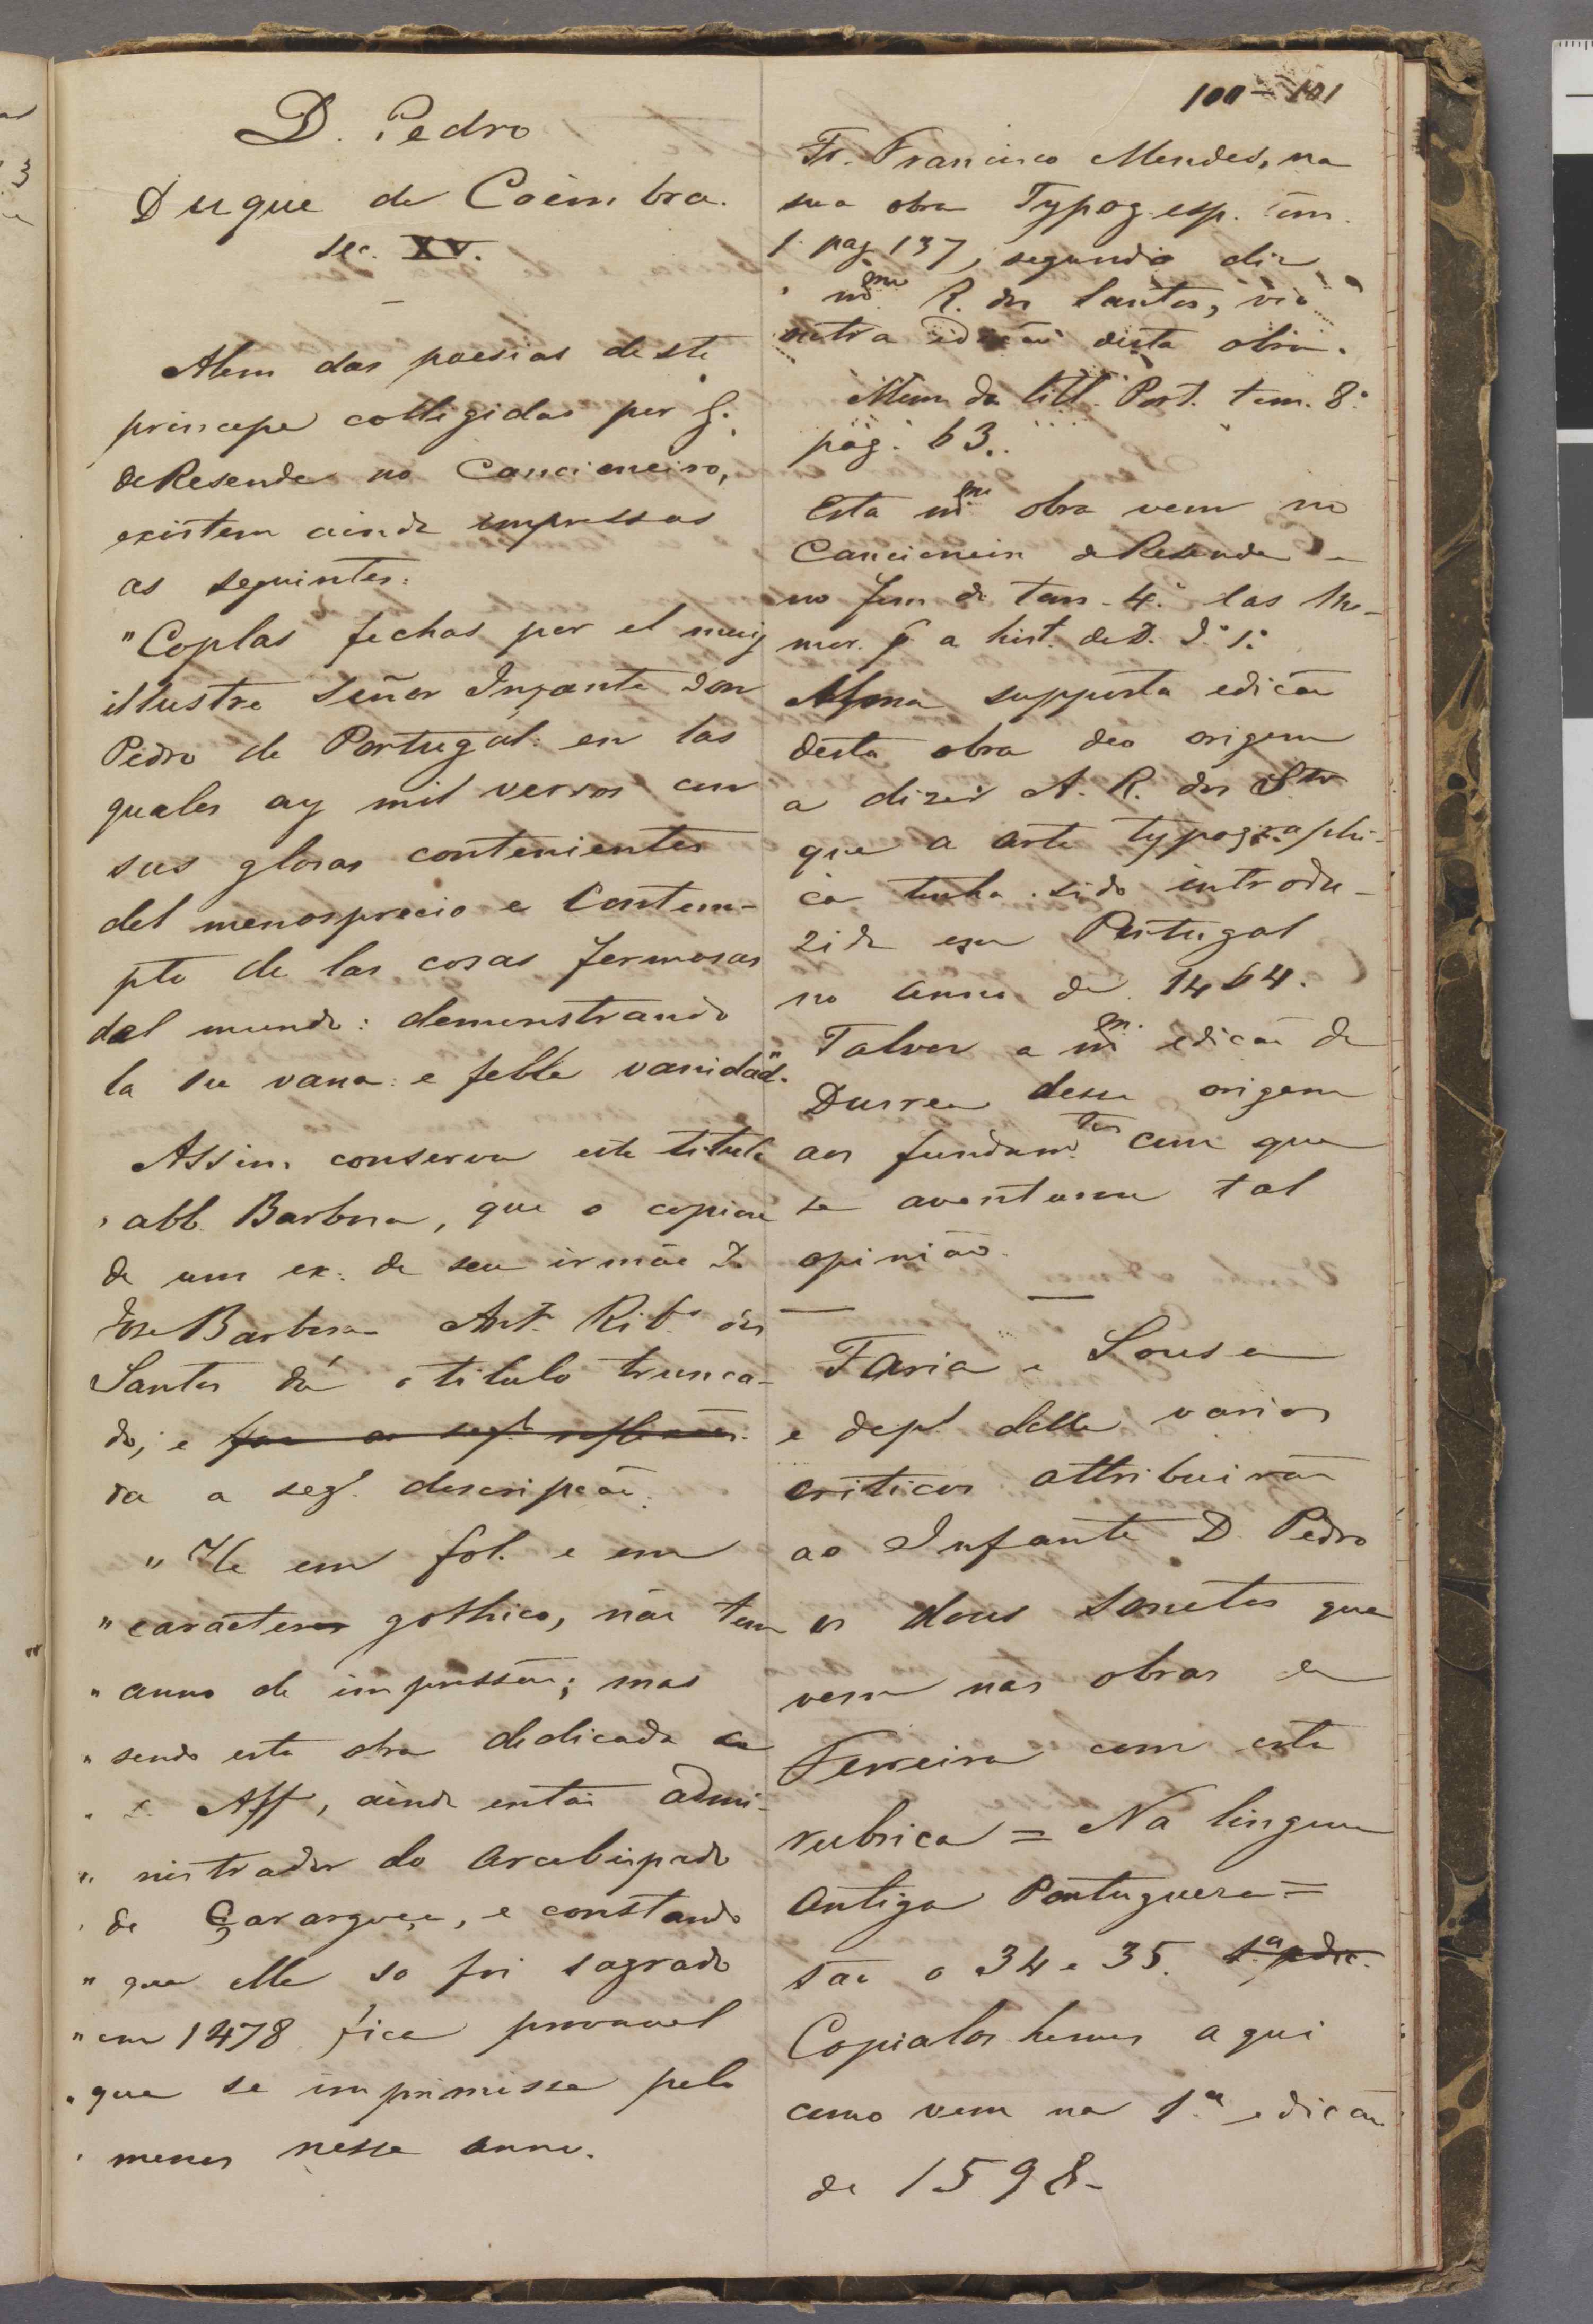 100-101
D. Pedro
Duque de Coimbra.
sec. XV.
Alem das poesias deste
principe colligidas por G.
de Resende no Cancioneiro,
existem ainda impressas
as seguintes:
"Coplas fechas por el muy
illustre Señor Infante don
Pedro de Portugal: en las
quales ay mil versos con
sus glosas contenientes
del menosprecio e Contem-
pto de las cosas fermosas
del mundo: demonstrando
la su vana: e feble vanidad".
Assim conserva este titulo
abb. Barbosa, que o copiou
de um ex: de seu irmão D.
Jose Barbosa Ant.º Rib.º dos
Santos dá o titulo trunca-
do, e faz as seg.tes reflexões.
da a seg.te descripção.
"He em fol. e em
"caracteres gothico, não tem
"anno de impressão; mas
"sendo esta obra dedicada a
" Aff, ainda então admi-
"nistrador do Arcebispado
"de Çaragoça, e constando
"que elle so foi sagrado
"em 1478 fica provavel
"que se imprimisse pelo
"menos nesse anno.
Fr. Francisco Mendes, na
sua obra Typog. esp. tom.
1. pag 137, segundo diz
o mmo R. dos Santos, vio
outra edição desta obra.
Mem da litt. Port. tom. 8.º
pag. 63.
Esta mma obra vem no
Cancioneiro de Resende e
no fim do tom. 4.º das Me-
mor. p.ª a hist. de D. J.º 1.º
Alguma supposta edição
desta obra deo origem
a dizer A. R. dos Stos
que a arte typographi-
ca tinha sido introdu-
zida em Portugal
no anno de 1464.
Talvez a mma edição de
desse origem
aos fundam.tos com que
se aventurou tal
opinião.
Faria e Sousa
e dep.s delle varios
criticos attribuirão
ao Infante D. Pedro
os dous Sonetos que
vem nas obras de
Ferreira com esta
rubrica = Na lingua
Antiga Portugueza =
são o 34 e 35.
Copialos hemos aqui
como vem na 1.ª edição
de 1598-